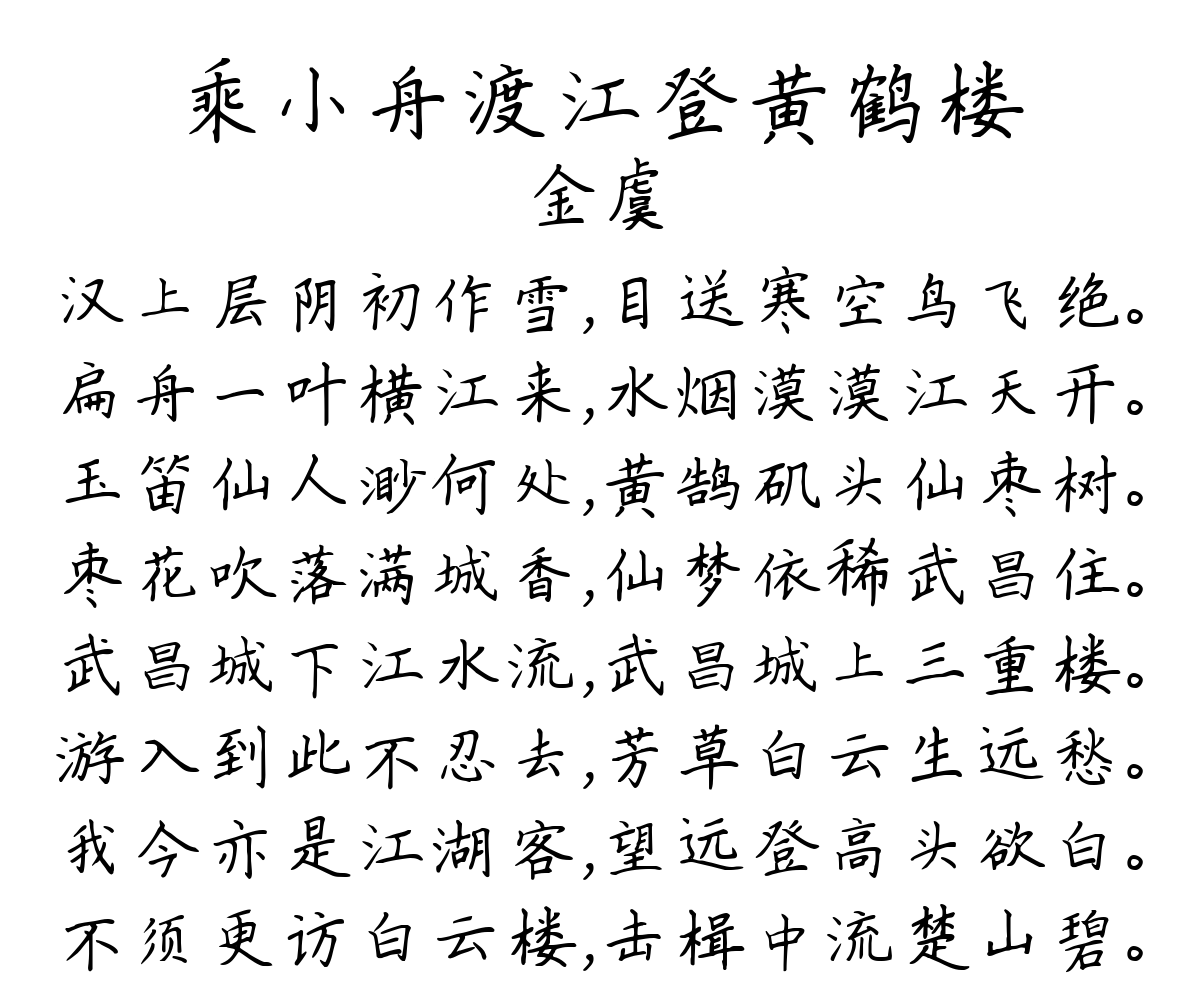 乘小舟渡江登黄鹤楼
金虞
汉上层阴初作雪,目送寒空鸟飞绝。
扁舟一叶横江来,水烟漠漠江天开。
玉笛仙人渺何处,黄鹄矶头仙枣树。
枣花吹落满城香,仙梦依稀武昌住。
武昌城下江水流,武昌城上三重楼。
游入到此不忍去,芳草白云生远愁。
我今亦是江湖客,望远登高头欲白。
不须更访白云楼,击楫中流楚山碧。